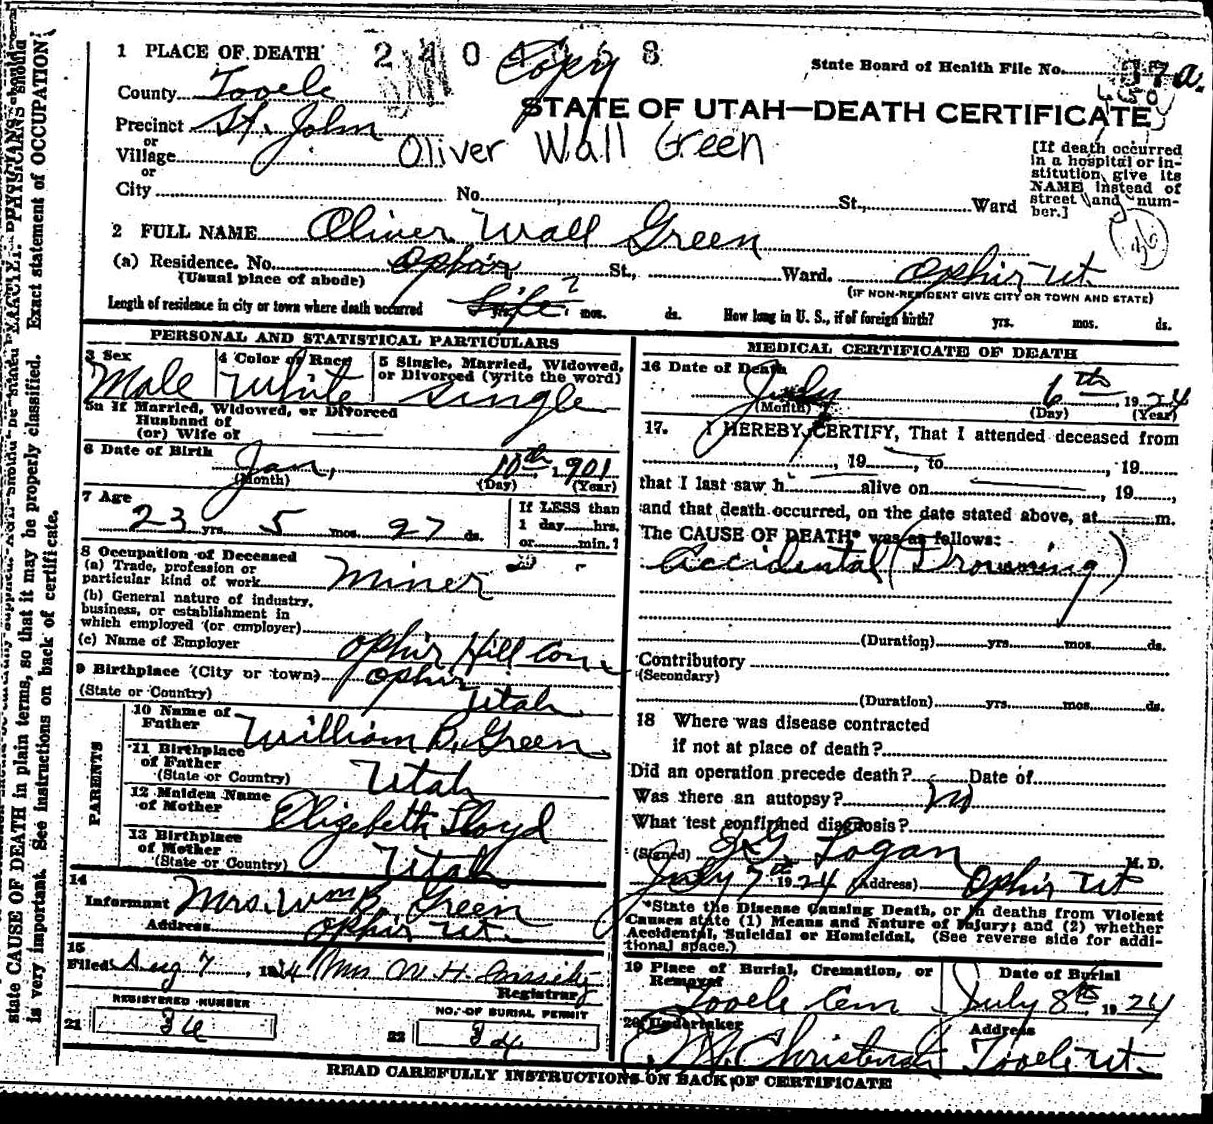 1 PLACE OF DEATH 2404 58 Copy
State Board of Health File No. 37 a.
County Tooele
STATE OF UTAH—DEATH CERTIFICATE
Precinct St. John
or
Village
Oliver Wall Green
or
City No. St., Ward
[If death occurred
in a hospital or in-
stitution, give its
NAME instead of
street and num-
ber.]
2 FULL NAME Oliver Wall Green
(a) Residence. No. Ophir St., Ward. Ophir Ut.
(Usual place of abode) (IF NON-RESIDENT GIVE CITY OR TOWN AND STATE)
Length of residence in city or town where death occurred Life ? yrs. mos. ds. How long in U. S., if of foreign birth? yrs. mos. ds.
PERSONAL AND STATISTICAL PARTICULARS
3 Sex
Male
4 Color or Race
White
5 Single, Married, Widowed,
or Divorced (write the word)
Single
5a If Married, Widowed, or Divorced
Husband of
(or) Wife of
6 Date of Birth
Jan. 10th 1901
(Month) (Day) (Year)
7 Age
23 yrs. 5 mos. 27 ds.
If LESS than
1 day......hrs.
or.........min.?
8 Occupation of Deceased
(a) Trade, profession or
particular kind of work Miner
(b) General nature of industry,
business, or establishment in
which employed (or employer)
(c) Name of Employer Ophir Hill Con
9 Birthplace (City or town) Ophir
(State or Country) Utah
PARENTS
10 Name of
Father William B. Green
11 Birthplace
of Father
(State or Country) Utah
12 Maiden Name
of Mother Elizebeth Lloyd
13 Birthplace
of Mother
(State or Country) Utah
14
Informant Mrs. Wm B. Green
Address Ophir Ut.
15
Filed Aug 7, 1924 Mrs. W. H. Cassidy
Registrar
REGISTERED NUMBER
21 34
NO. OF BURIAL PERMIT
22 34
MEDICAL CERTIFICATE OF DEATH
16 Date of Death
July 6th 1924
(Month) (Day) (Year)
17. I HEREBY CERTIFY, That I attended deceased from
, 19 , to , 19
that I last saw h alive on , 19 ,
and that death occurred, on the date stated above, at m.
The CAUSE OF DEATH* was as follows:
Accidental (Drowning)
(Duration) yrs. mos. ds.
Contributory
(Secondary)
(Duration) yrs. mos. ds.
18 Where was disease contracted
if not at place of death?
Did an operation precede death? Date of
Was there an autopsy? No
What test confirmed diagnosis?
(Signed) Logan M. D.
July 7th 1924 (Address) Ophir Ut
*State the Disease Causing Death, or in deaths from Violent
Causes state (1) Means and Nature of Injury; and (2) whether
Accidental, Suicidal or Homicidal. (See reverse side for addi-
tional space.)
19 Place of Burial, Cremation, or
Removal
Tooele Cem
Date of Burial
July 8th 1924
20 Undertaker
Address
Tooele Ut.
READ CAREFULLY INSTRUCTIONS ON BACK OF CERTIFICATE
state CAUSE OF DEATH in plain terms, so that it may be properly classified. Exact statement of OCCUPATION
is very important. See instructions on back of certificate.